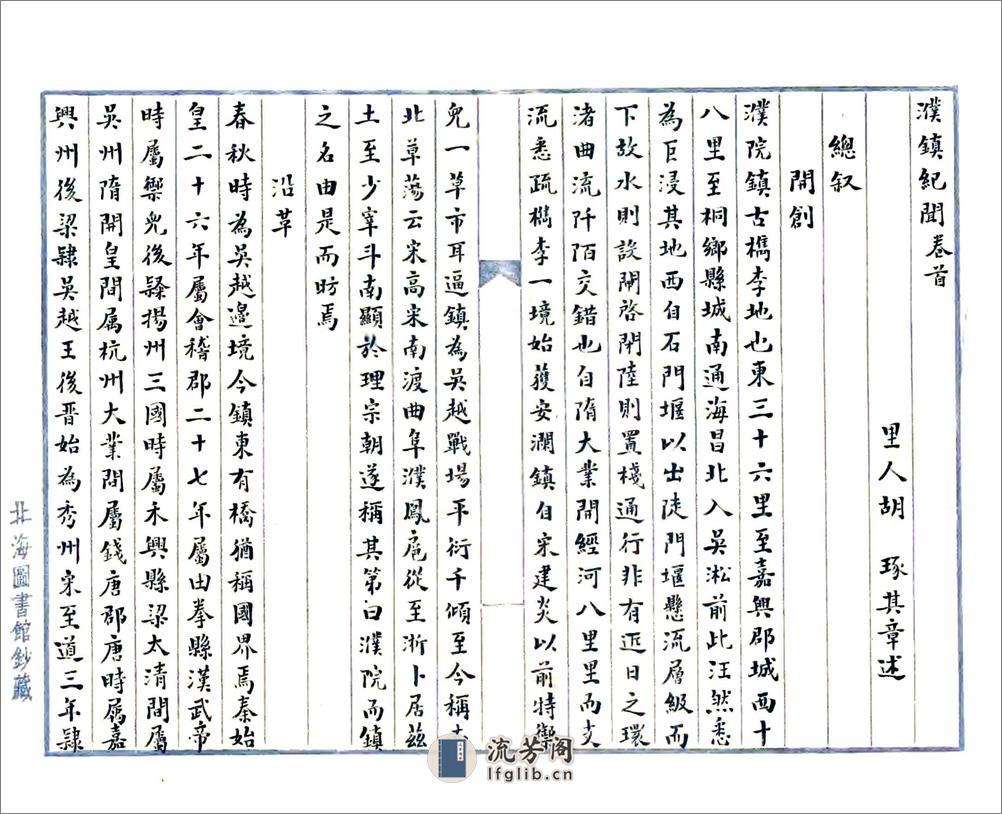 濮鎮紀聞卷首
里人胡 琢其章述
總叙
開創
濮院鎮古檇李地也東三十六里至嘉興郡城西十
八里至桐鄉縣城南通海昌北入吳淞前此汪然悉
為巨浸其地西自石門堰以出陡門堰懸流層級而
下故水則設閘啓閉陸則置棧通行非有近日之環
渚曲流阡陌交錯也自隋大業開經河八里里而支
流悉疏檇李一境始獲安瀾鎮自宋建炎以前特禦
兒一草市耳逼鎮為吳越戰場平衍千傾至今稱
北草蕩云宋高宋南渡曲阜濮鳳扈從至浙卜居兹
土至少宰斗南顯於理宗朝遂稱其第曰濮院而鎮
之名由是而昉焉
沿革
春秋時為吳越邊境今鎮東有橋猶稱國界焉秦始
皇二十六年屬會稽郡二十七年屬由拳縣漢武帝
時屬禦兒後隸揚州三國時屬禾興縣梁太清間屬
吳州隋開皇間属杭州大業間屬錢唐郡唐時屬嘉
興州後梁隸吳越王後晋始為秀州宋至道三年隸
北海圖書館鈔藏
流芳阁
lfglib.cn